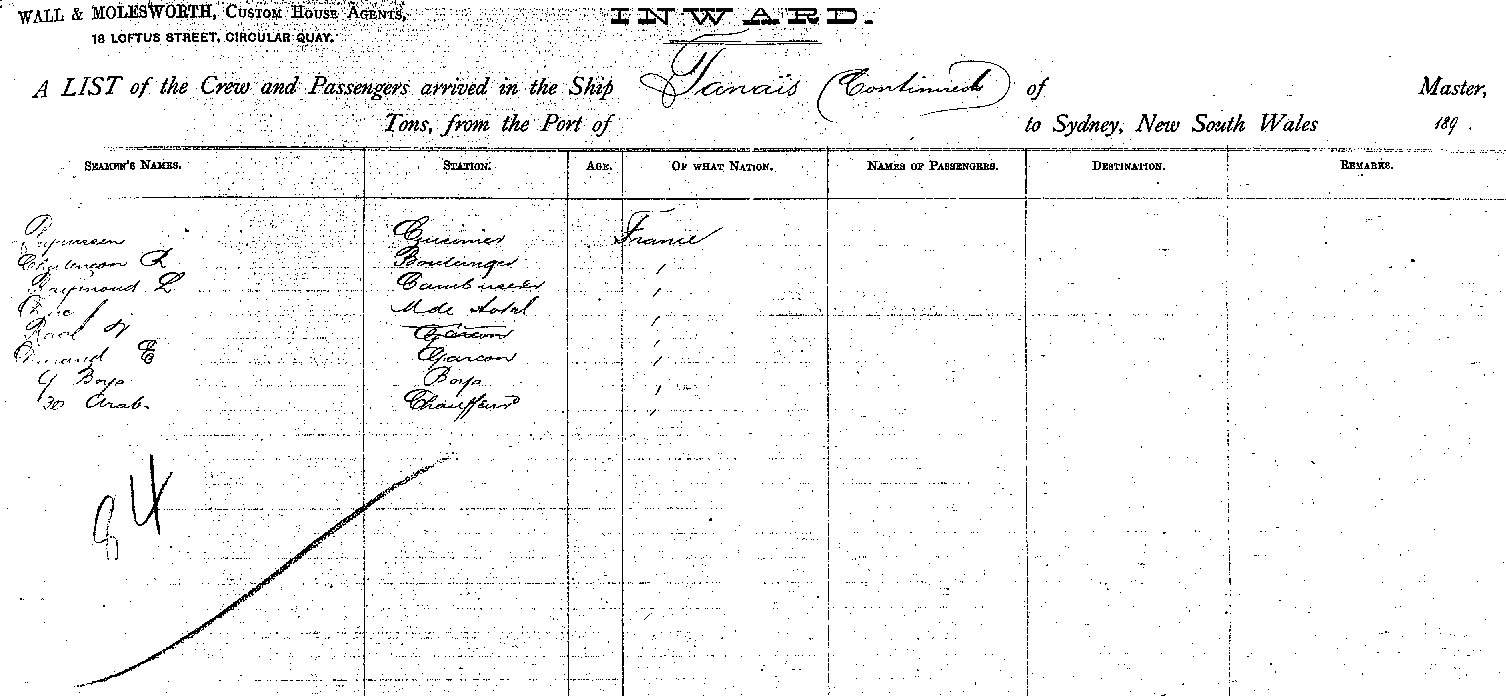 WALL & MOLESWORTH, CUSTOM HOUSE AGENTS,
18 LOFTUS STREET, CIRCULAR QUAY.
INWARD.
A LIST of the Crew and Passengers arrived in the Ship Tanaïs (Continued) of Master,
Tons, from the Port of to Sydney, New South Wales 189 .
SEAMEN'S NAMES. STATION. AGE. OF WHAT NATION. NAMES OF PASSENGERS. DESTINATION. REMARKS.
Cuisinier France
Boulanger "
Raymond L Cambusier "
M de hotel "
Garcon
Durand E Garcon "
Boys Boys "
30 Arabs Chauffeurs "
84